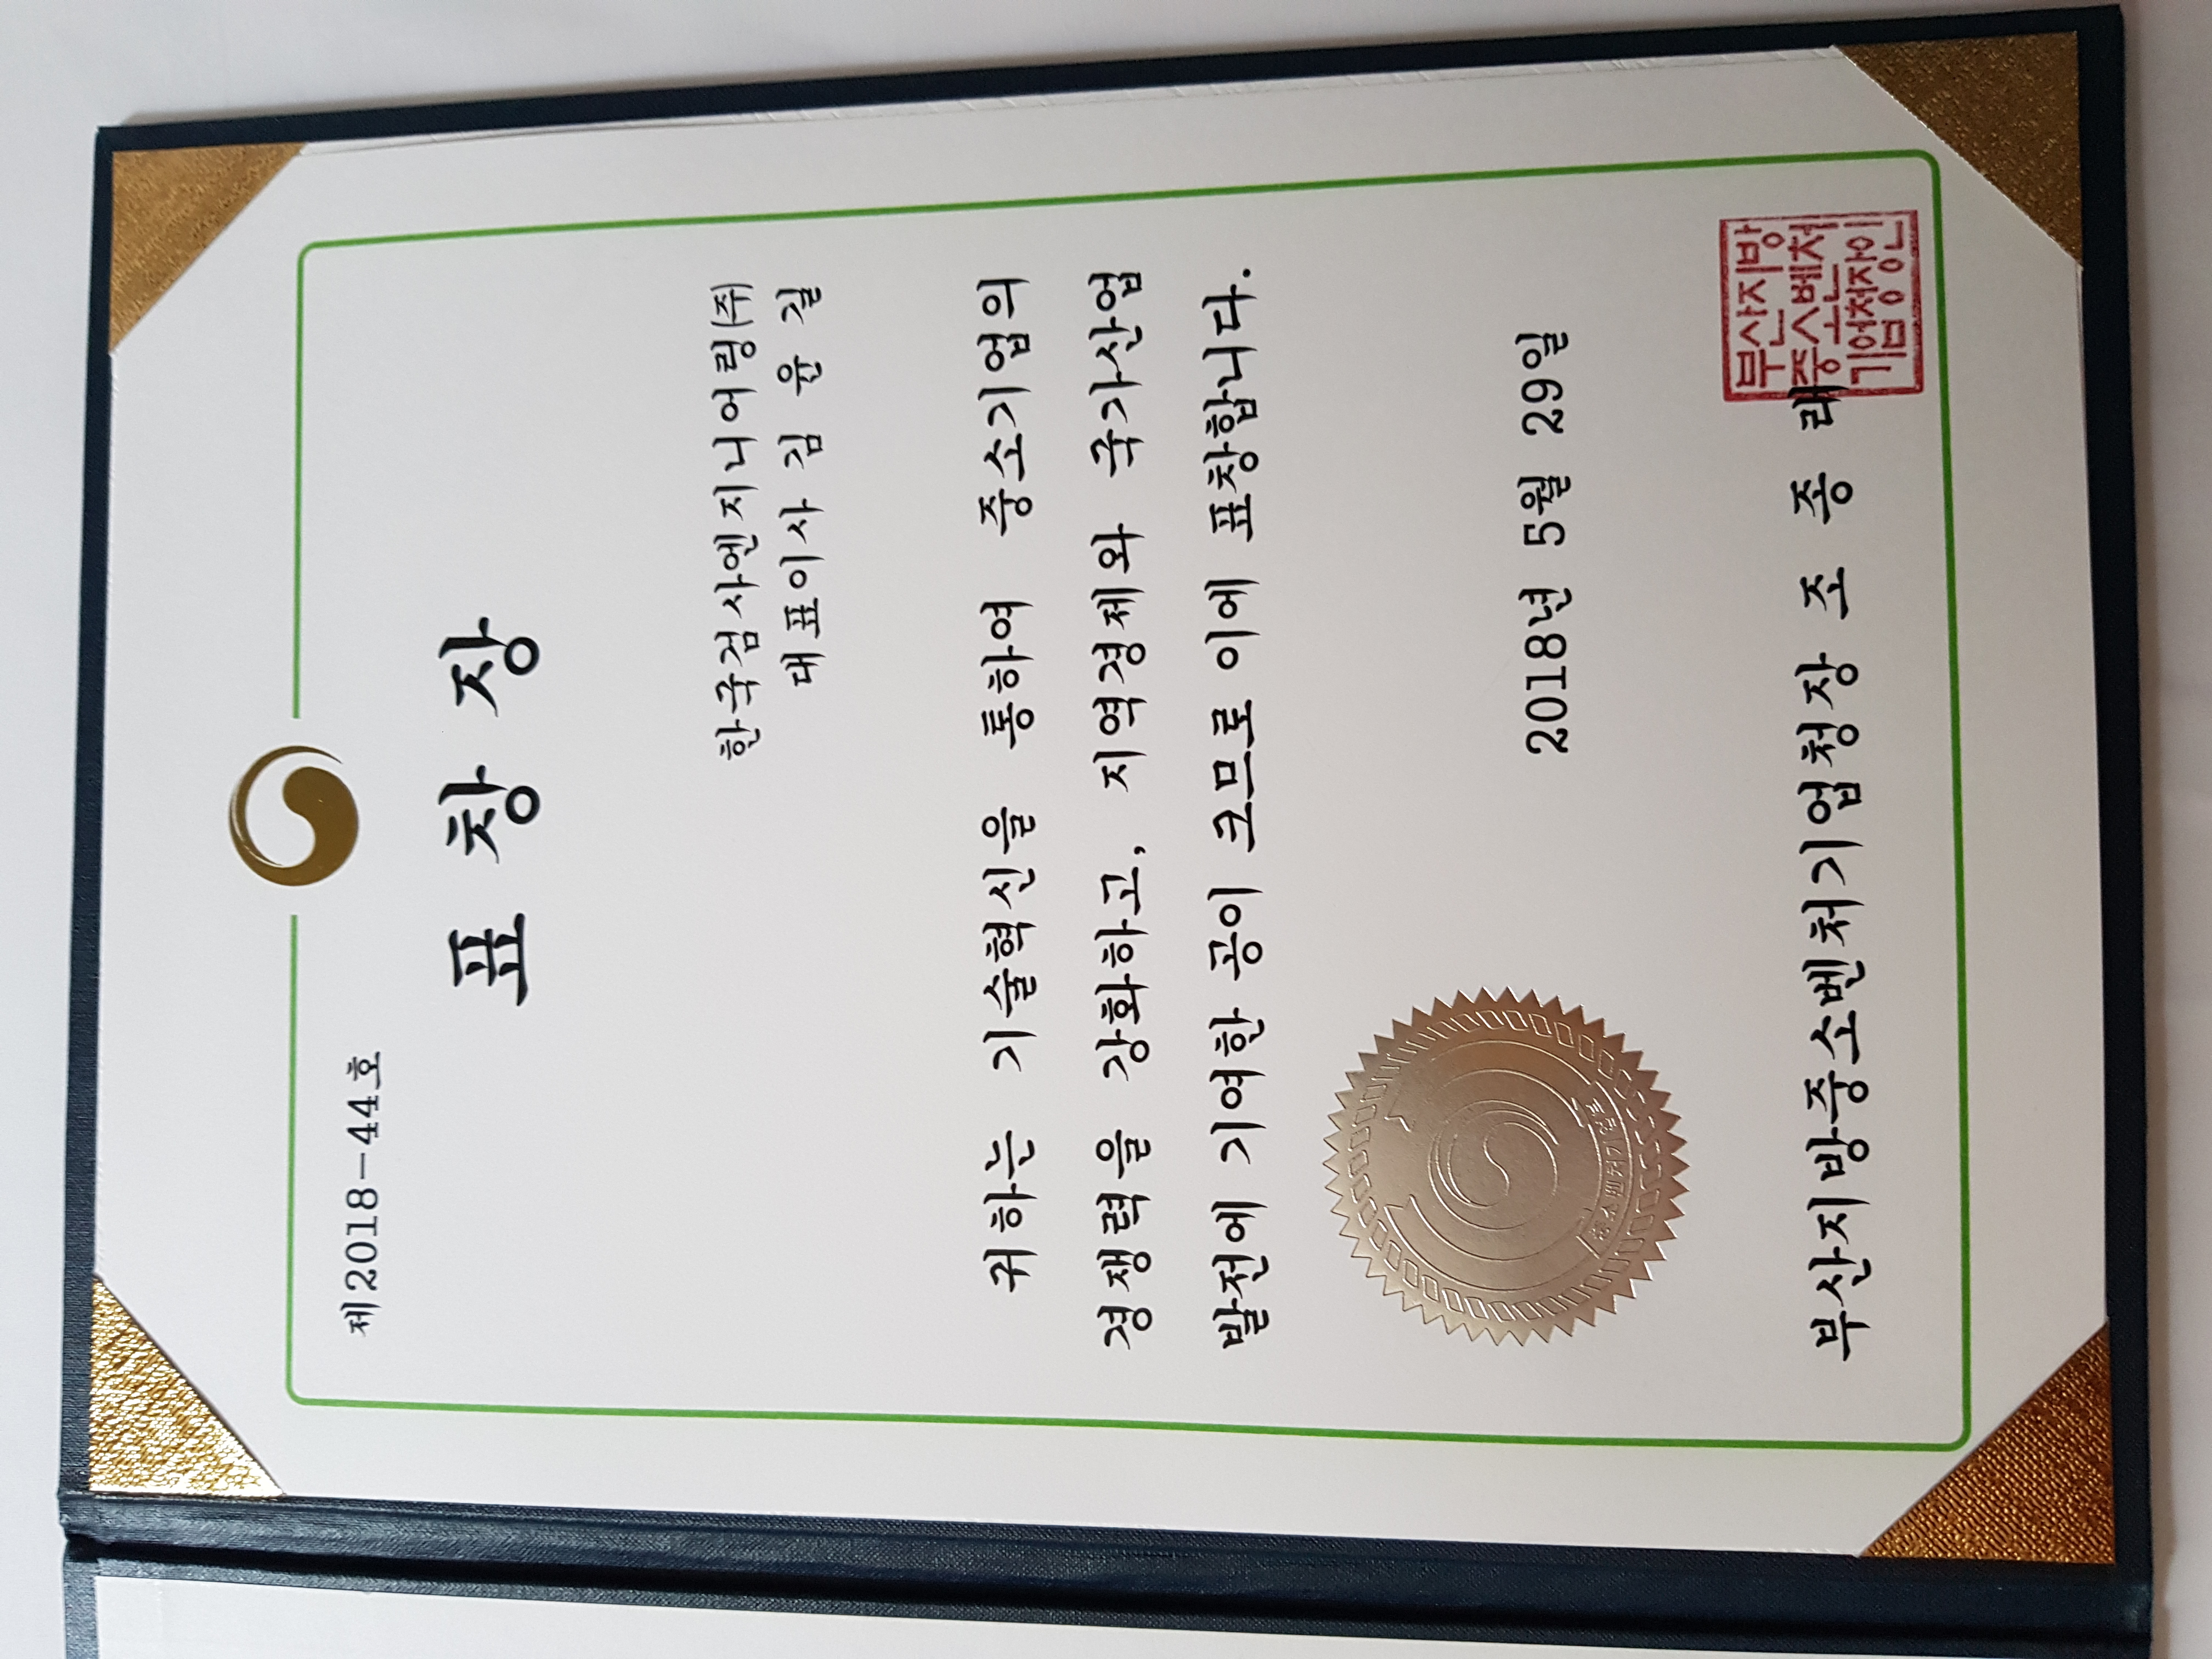 제2018-44호
표 창 장
한국검사엔지니어링(주)
대표이사 김 윤 길
귀하는 기술혁신을 통하여 중소기업의
경쟁력을 강화하고, 지역경제와 국가산업
발전에 기여한 공이 크므로 이에 표창합니다.
2018년 5월 29일
중소벤처기업부
부산지방중소벤처기업청장 조 종 래
부산지방
중소벤처
기업청장인